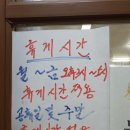 휴게시간
월 ~ 금 오후2시 ~ 5시
휴게시간 적용
공휴일 및 주말